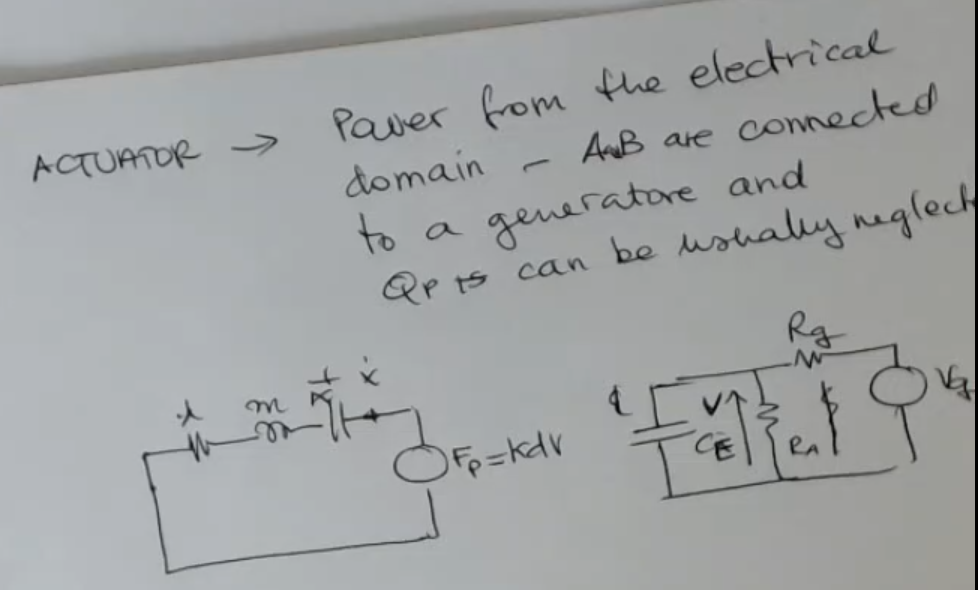 ACTUATOR → Power from the electrical
domain - A&B are connected
to a generatore and
Qp is can be usually neglect
λ m 1/K ẋ
Fp=KdV
q V CE RA Rg Vg